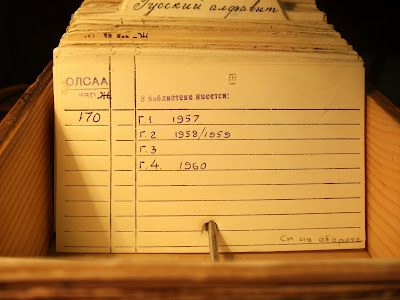 Русский алфавит
ОЛСАА
II
В библиотеке имеется:
170
Г. 1 1957
Г. 2 1958/1959
Г. 3
Г. 4. 1960
См. на обороте